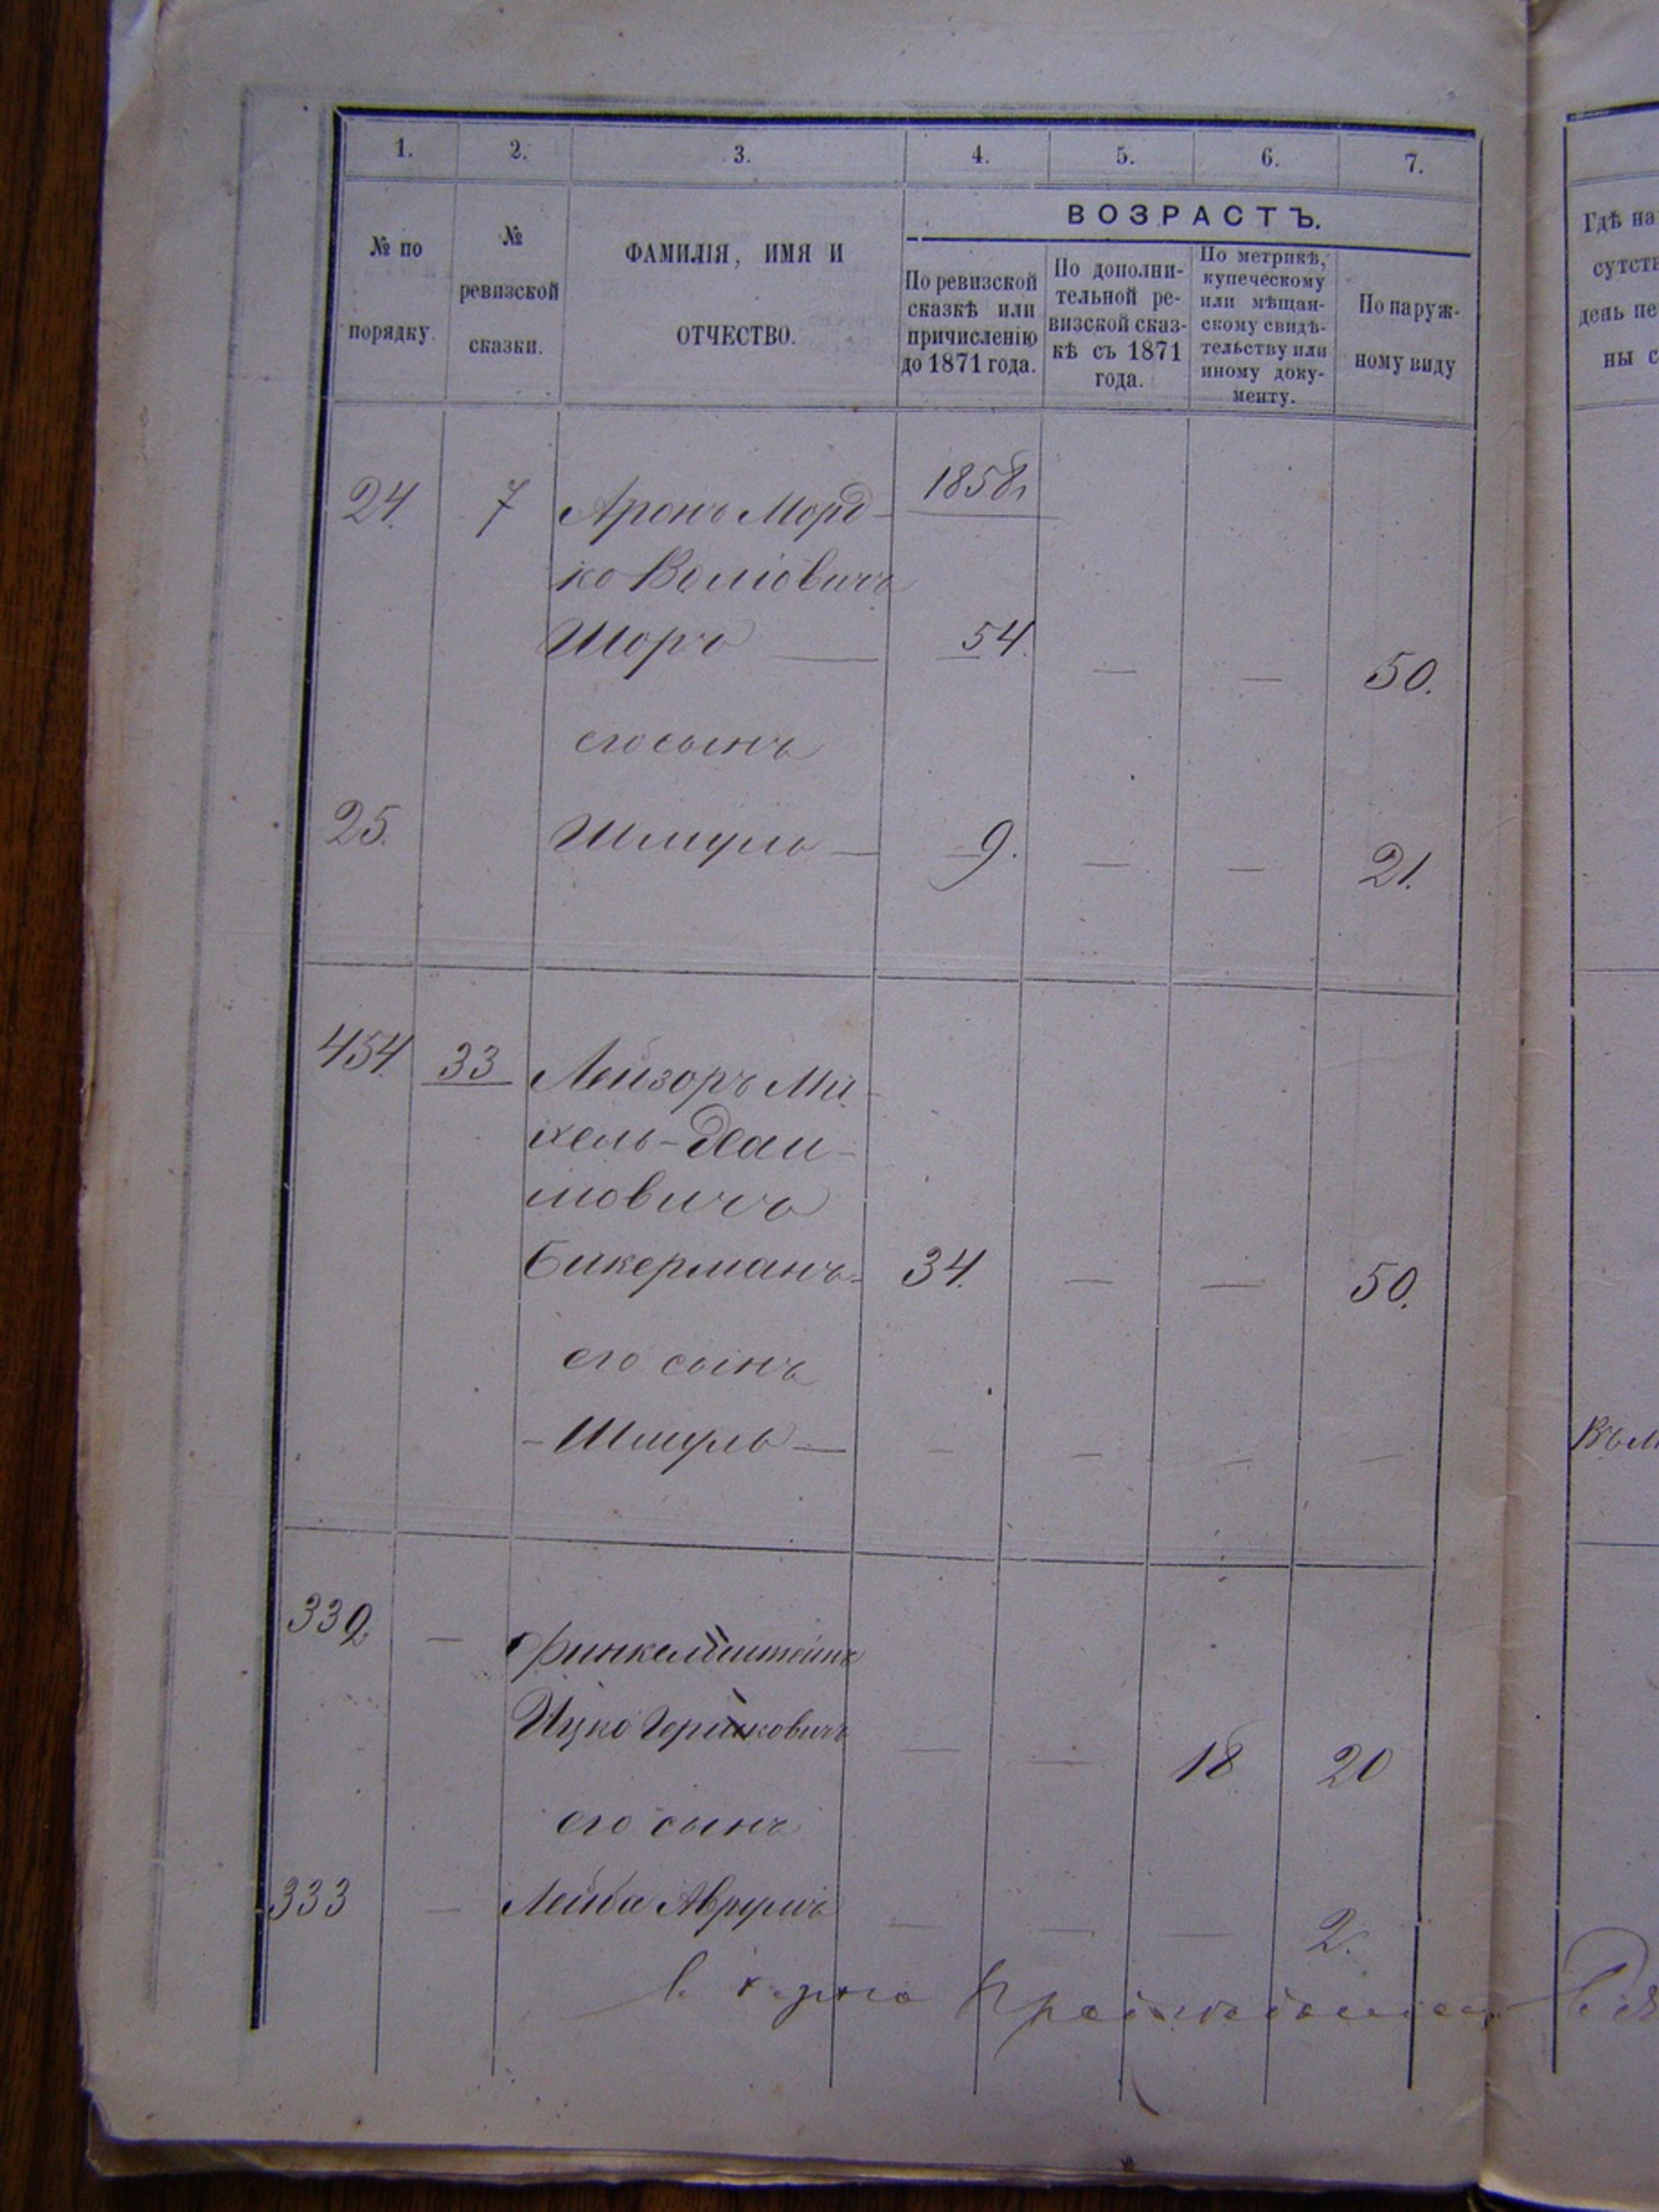 1. 2. 3. 4. 5. 6. 7.
№ по порядку.
№ ревизской сказки.
ФАМИЛІЯ, ИМЯ И ОТЧЕСТВО.
ВОЗРАСТЪ.
По ревизской сказкѣ или причисленію до 1871 года.
По дополни-
тельной ре-
визской сказ-
кѣ съ 1871
года.
По метрикѣ,
купеческому
или мѣщан-
скому свидѣ-
тельству или
иному доку-
менту.
По наруж-
ному виду
Гдѣ на
сутств
день пе
ны с
1858
24. 7 Аронъ Морд-
ко Волковичъ
Шоръ — 54. — — 50.
его сынъ
25. Шмуль — 9. — — 21.
454. 33 Лейзоръ Ми-
хель-Хаи-
мовичъ
Бикерманъ 34. — — 50.
его сынъ
- Шмуль — — — — —
332 — Финкельштейнъ
Ицко Гершковичъ — — 18 20
его сынъ
333 — Лейба Аврумъ — — — 2.